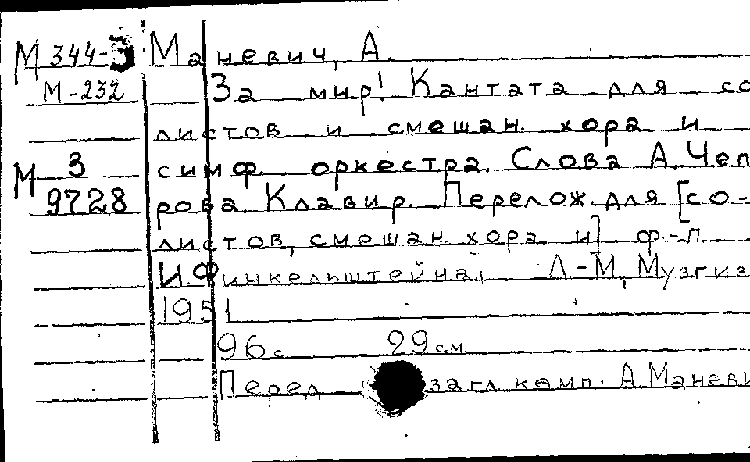 М 344-3 Маневич, А.
М-232 За мир! Кантата для со
листов и смешан. хора и
М 3 симф. оркестра. Слова А. Чеп
9728 рова Клавир. Перелож. для [со-
листов, смешан. хора и] ф-п.
И. Финкельштейна. Л.-М, Музгиз
1951
96 с. 29 см
Перед загл. комп. А. Маневи